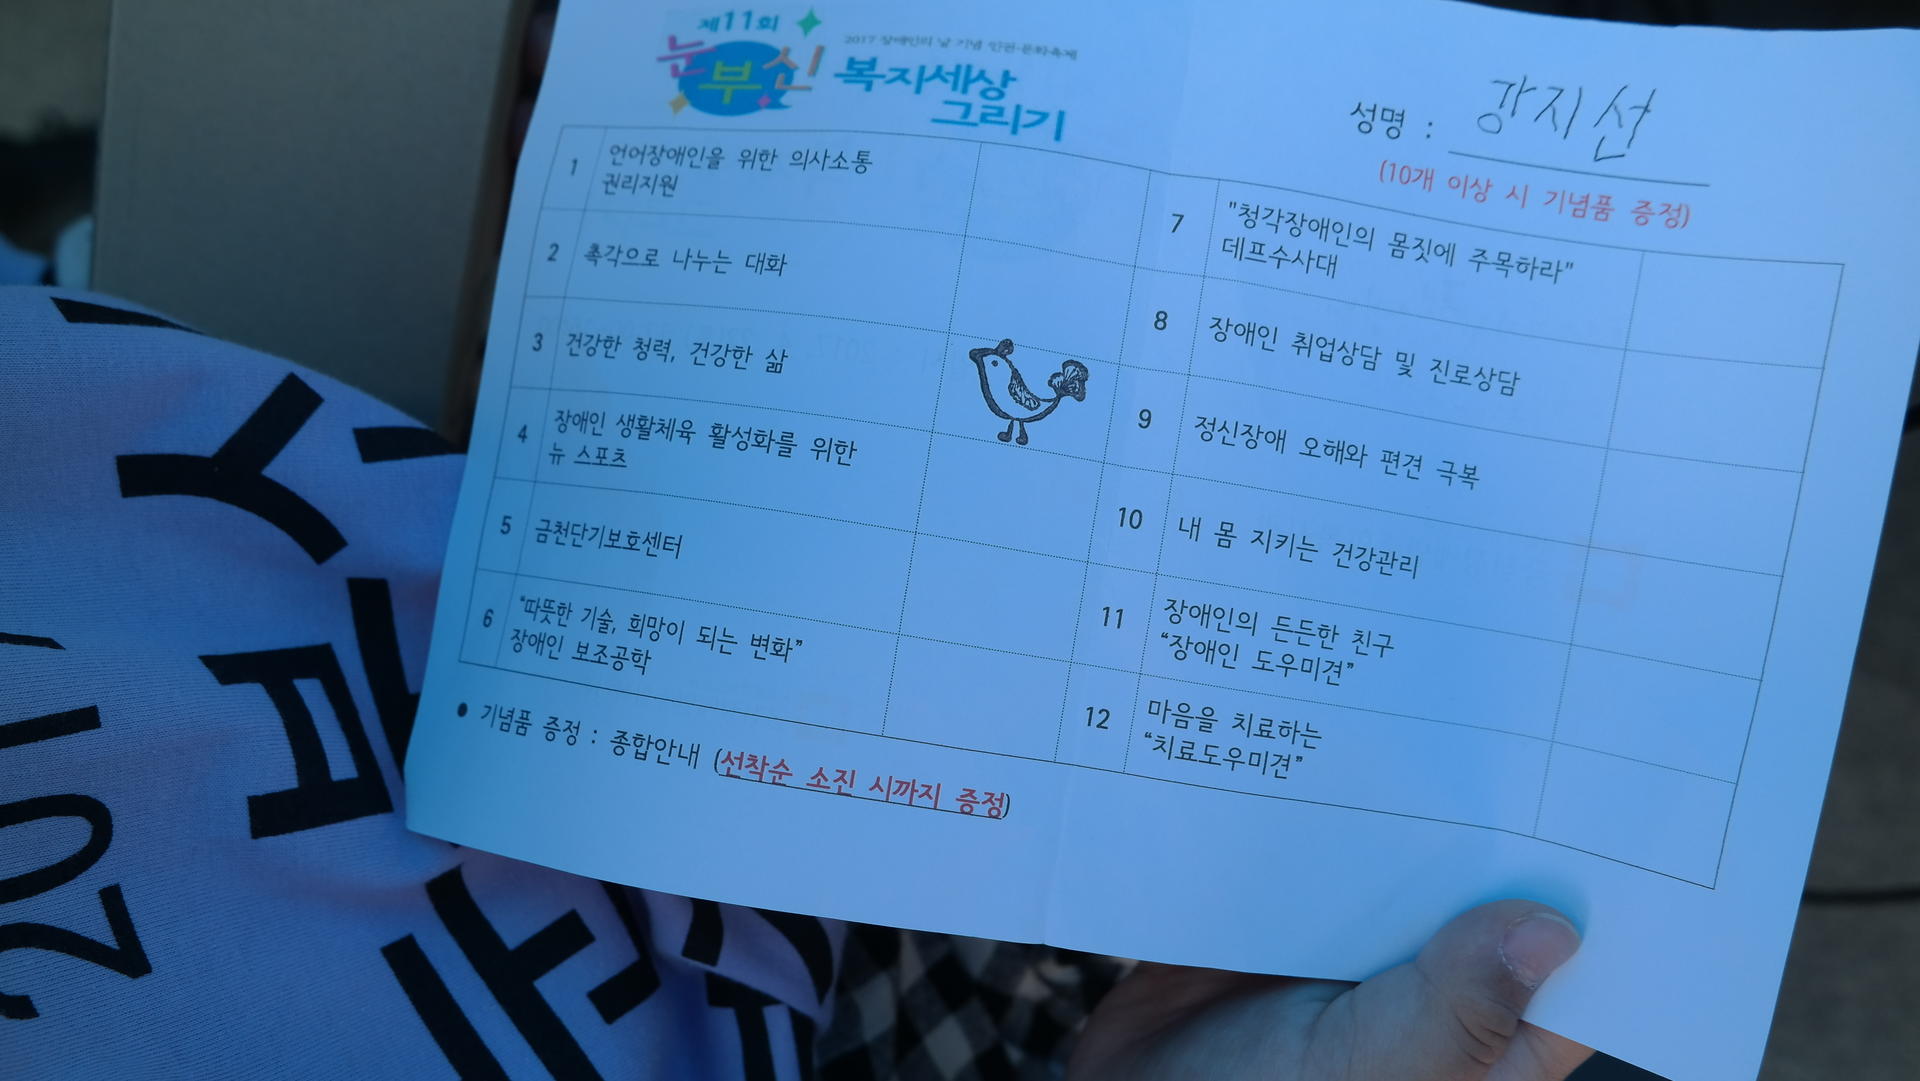 제11회
눈부신
2017 장애인의 날 기념 인권·문화축제
복지세상
그리기
성명 : 강지선
(10개 이상 시 기념품 증정)
1 언어장애인을 위한 의사소통
권리지원
2 촉각으로 나누는 대화
3 건강한 청력, 건강한 삶
4 장애인 생활체육 활성화를 위한
뉴 스포츠
5 금천단기보호센터
6 “따뜻한 기술, 희망이 되는 변화”
장애인 보조공학
7 "청각장애인의 몸짓에 주목하라"
데프수사대
8 장애인 취업상담 및 진로상담
9 정신장애 오해와 편견 극복
10 내 몸 지키는 건강관리
11 장애인의 든든한 친구
“장애인 도우미견”
12 마음을 치료하는
“치료도우미견”
● 기념품 증정 : 종합안내 (선착순 소진 시까지 증정)